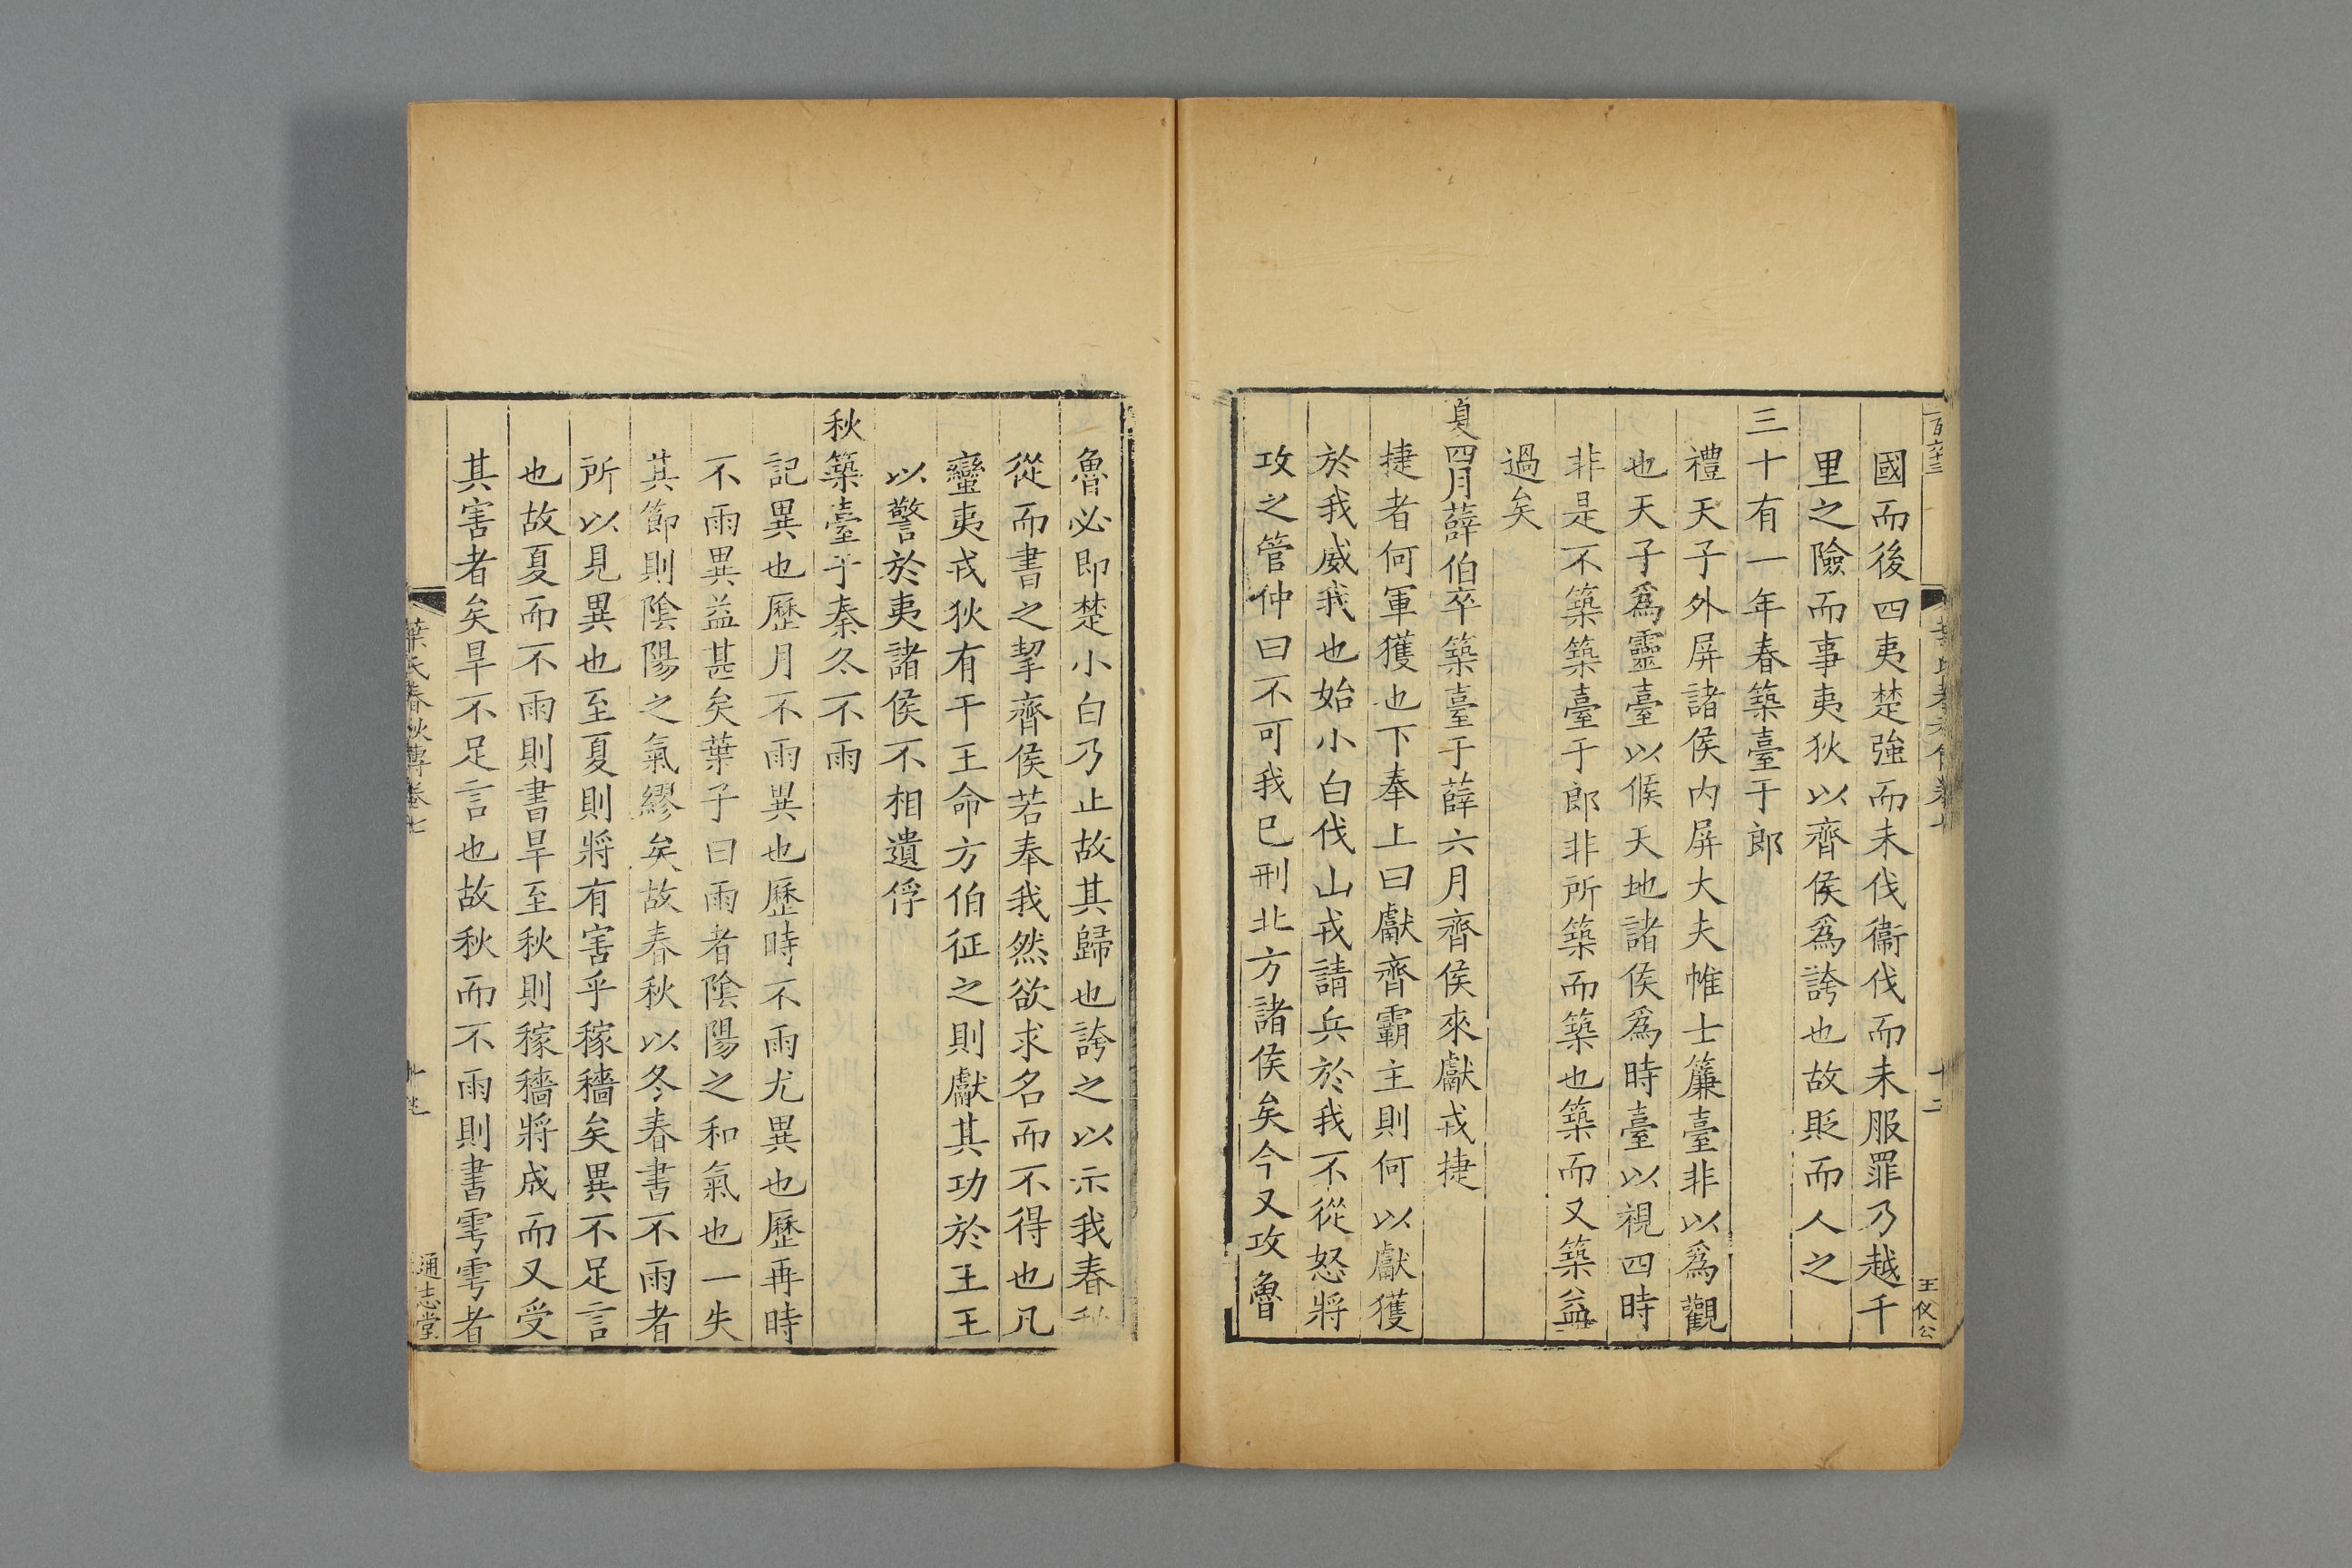 國而後四夷楚強而未伐衞伐而未服罪乃越千
里之險而事夷狄以齊侯爲誇也故貶而人之
三十有一年春築臺于郎
禮天子外屏諸侯內屏大夫帷士簾臺非以爲觀
也天子爲靈臺以候天地諸侯爲時臺以視四時
非是不築築臺于郎非所築而築也築而又築益
過矣
夏四月薛伯卒築臺于薛六月齊侯來獻戎捷
捷者何軍獲也下奉上曰獻齊霸主則何以獻獲
於我威我也始小白伐山戎請兵於我不從怒將
攻之管仲曰不可我已刑北方諸侯矣今又攻魯
魯必即楚小白乃止故其歸也誇之以示我春秋
從而書之挈齊侯若奉我然欲求名而不得也凡
蠻夷戎狄有干王命方伯征之則獻其功於王王
以警於夷諸侯不相遺俘
秋築臺于秦冬不雨
記異也歷月不雨異也歷時不雨尤異也歷再時
不雨異益甚矣葉子曰雨者陰陽之和氣也一失
其節則陰陽之氣繆矣故春秋以冬春書不雨者
所以見異也至夏則將有害乎稼穡矣異不足言
也故夏而不雨則書旱至秋則稼穡將成而又受
其害者矣旱不足言也故秋而不雨則書雩雩者
葉氏春秋傳卷七
通志堂